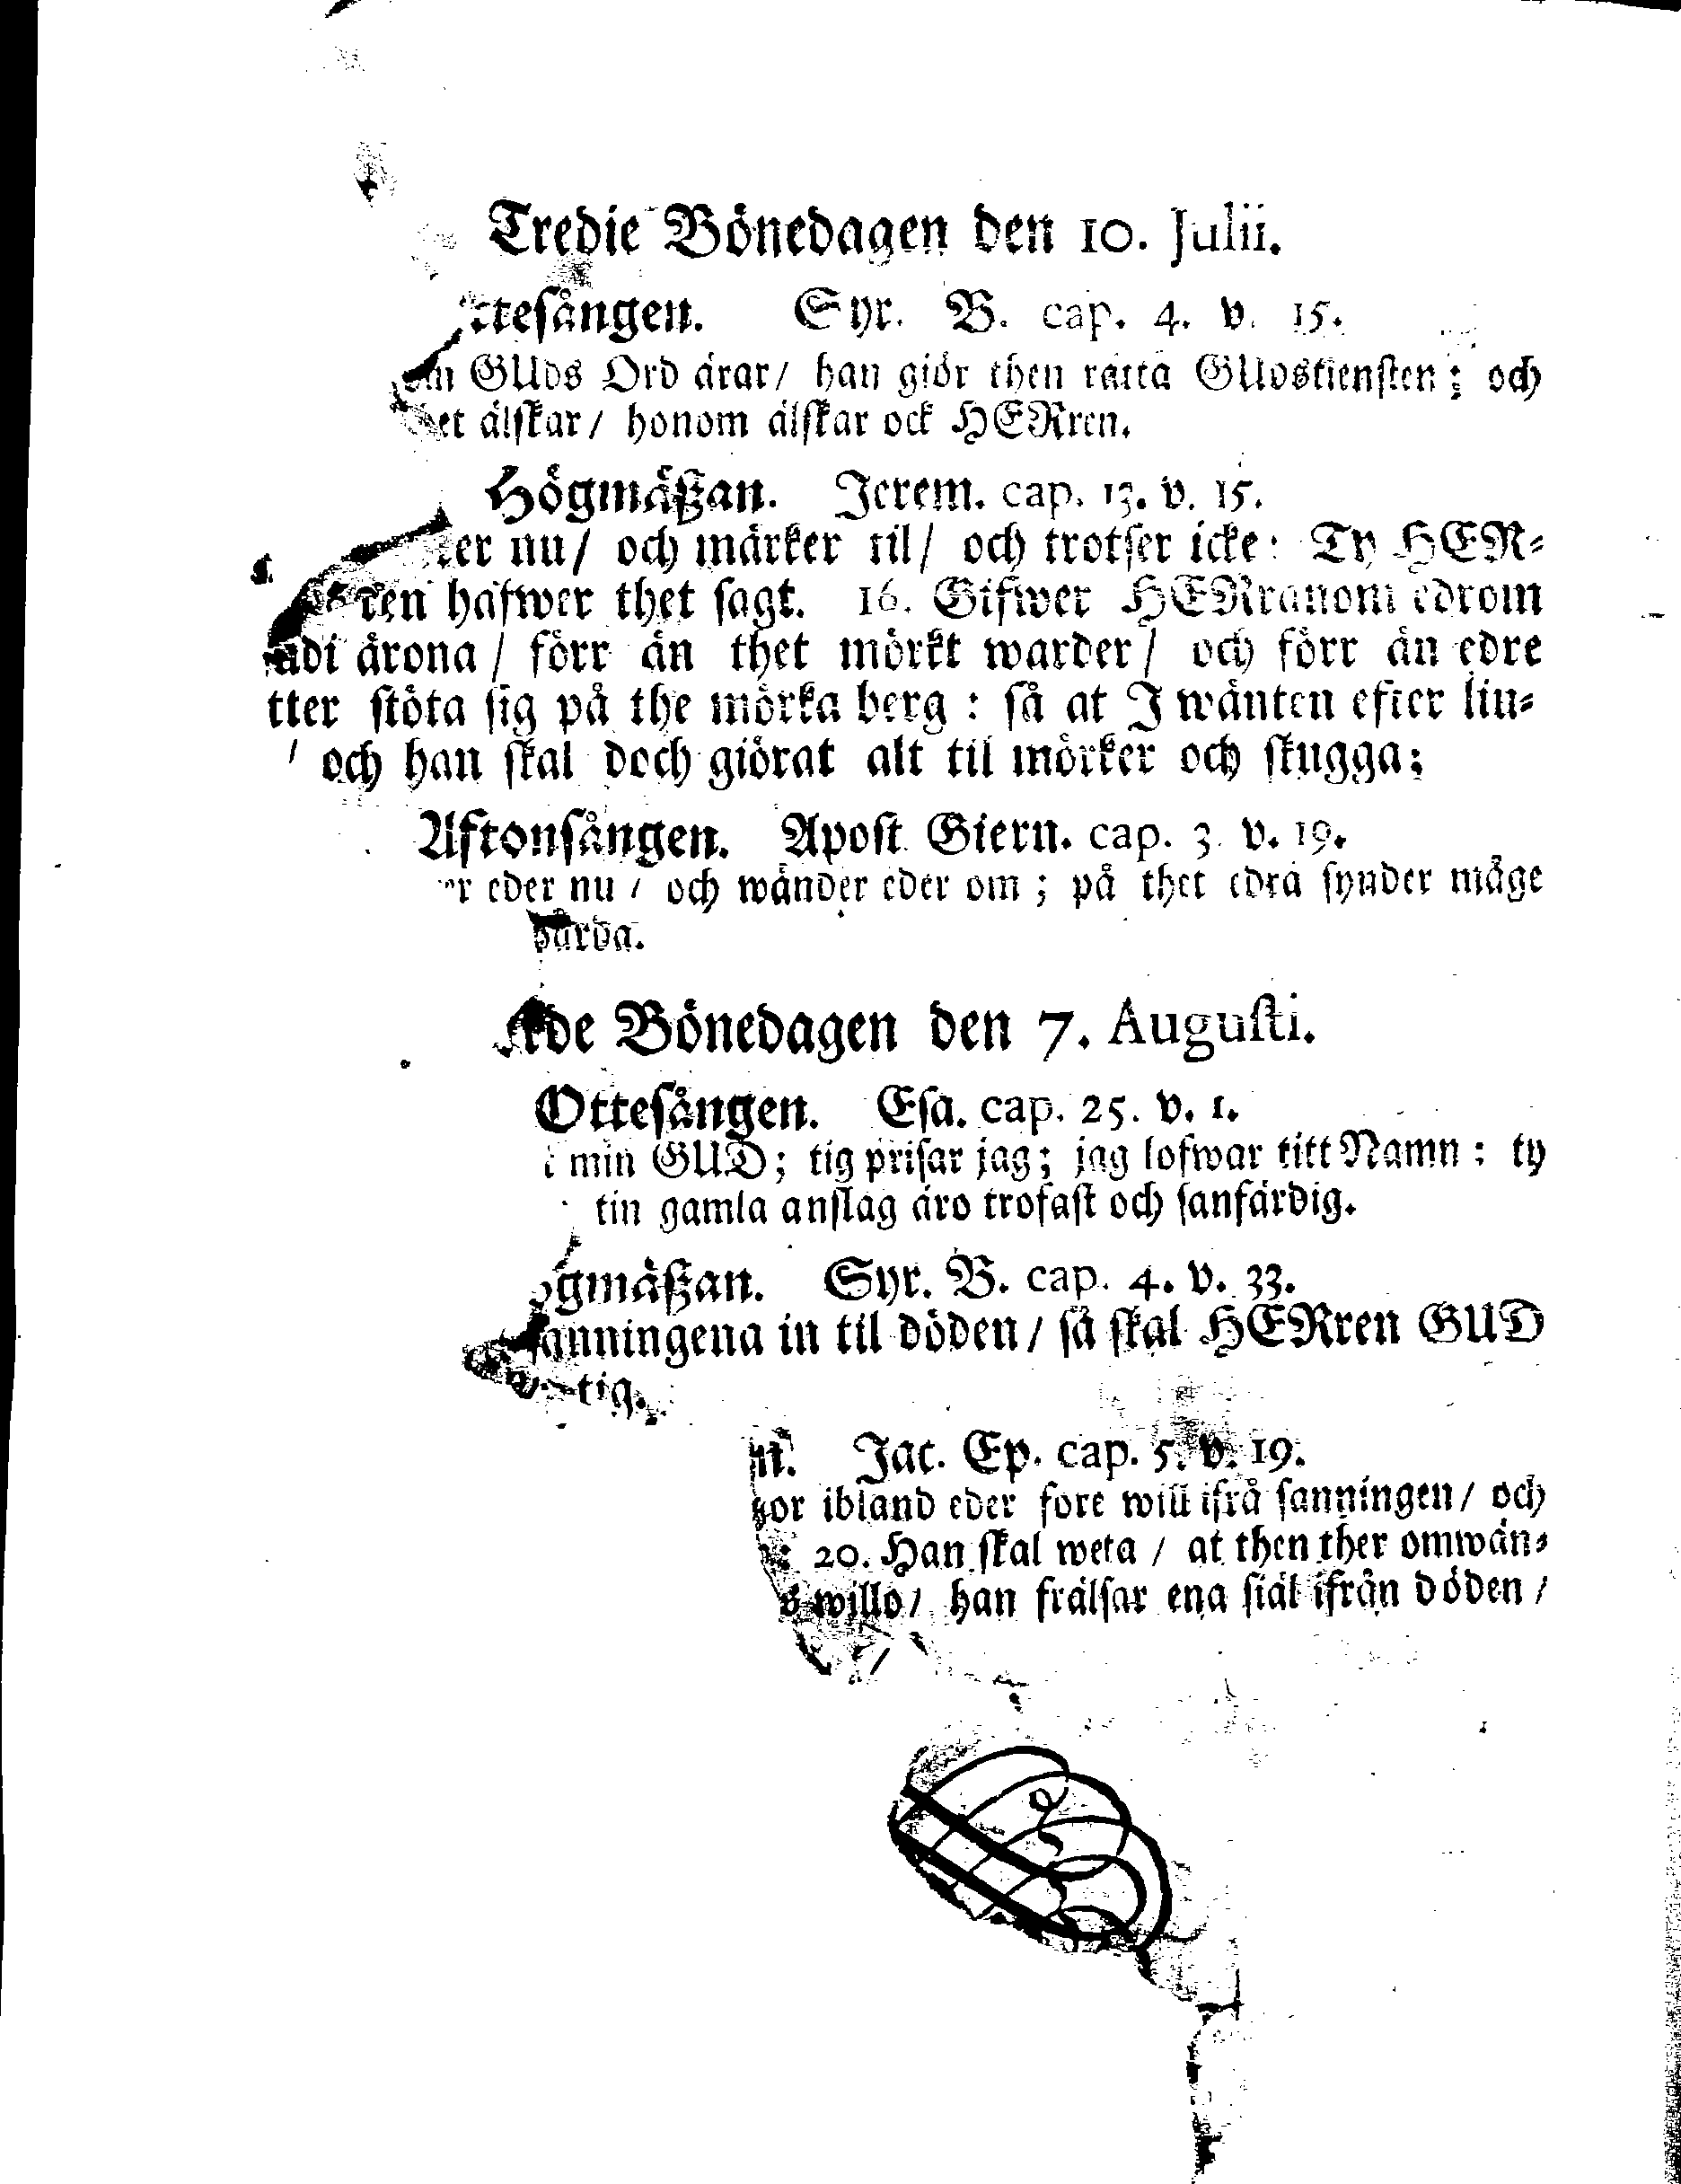 Tredie Bönedagen den 10. Julii.
ttesången. Syr. B. cap. 4. v. 15.
GUds Ord ärar/ han giör then rätta GUdstiensten; och
et älskar/ honom älskar ock HERren.
Högmäßan. Jerem. cap. 13. v. 15.
ter nu/ och märker til/ och trotser icke: Ty HER-
ren hafwer thet sagt. 16. Gifwer HERranom edrom
udi ärona/ förr än thet mörkt warder/ och förr än edre
tter stöta sig på the mörka berg: så at J wänten efter liu-
/ och han skal doch giörat alt til mörker och skugga;
Aftonsången. Apost Giern. cap. 3. v. 19.
r eder nu/ och wänder eder om; på thet edra synder måge
warda.
de Bönedagen den 7. Augusti.
Ottesången. Esa. cap. 25. v. 1.
min GUD; tig prisar jag; jag lofwar titt Namn: ty
tin gamla anslag äro trofast och sanfärdig.
ögmäßan. Syr. B. cap. 4. v. 33.
sanningena in til döden/ så skal HERren GUD
tig.
n. Jac. Ep. cap. 5. v. 19.
or ibland eder fore will ifrå sanningen/ och
20. Han skal weta/ at then ther omwän-
s willo/ han frälsar ena siäl ifrån döden/
/